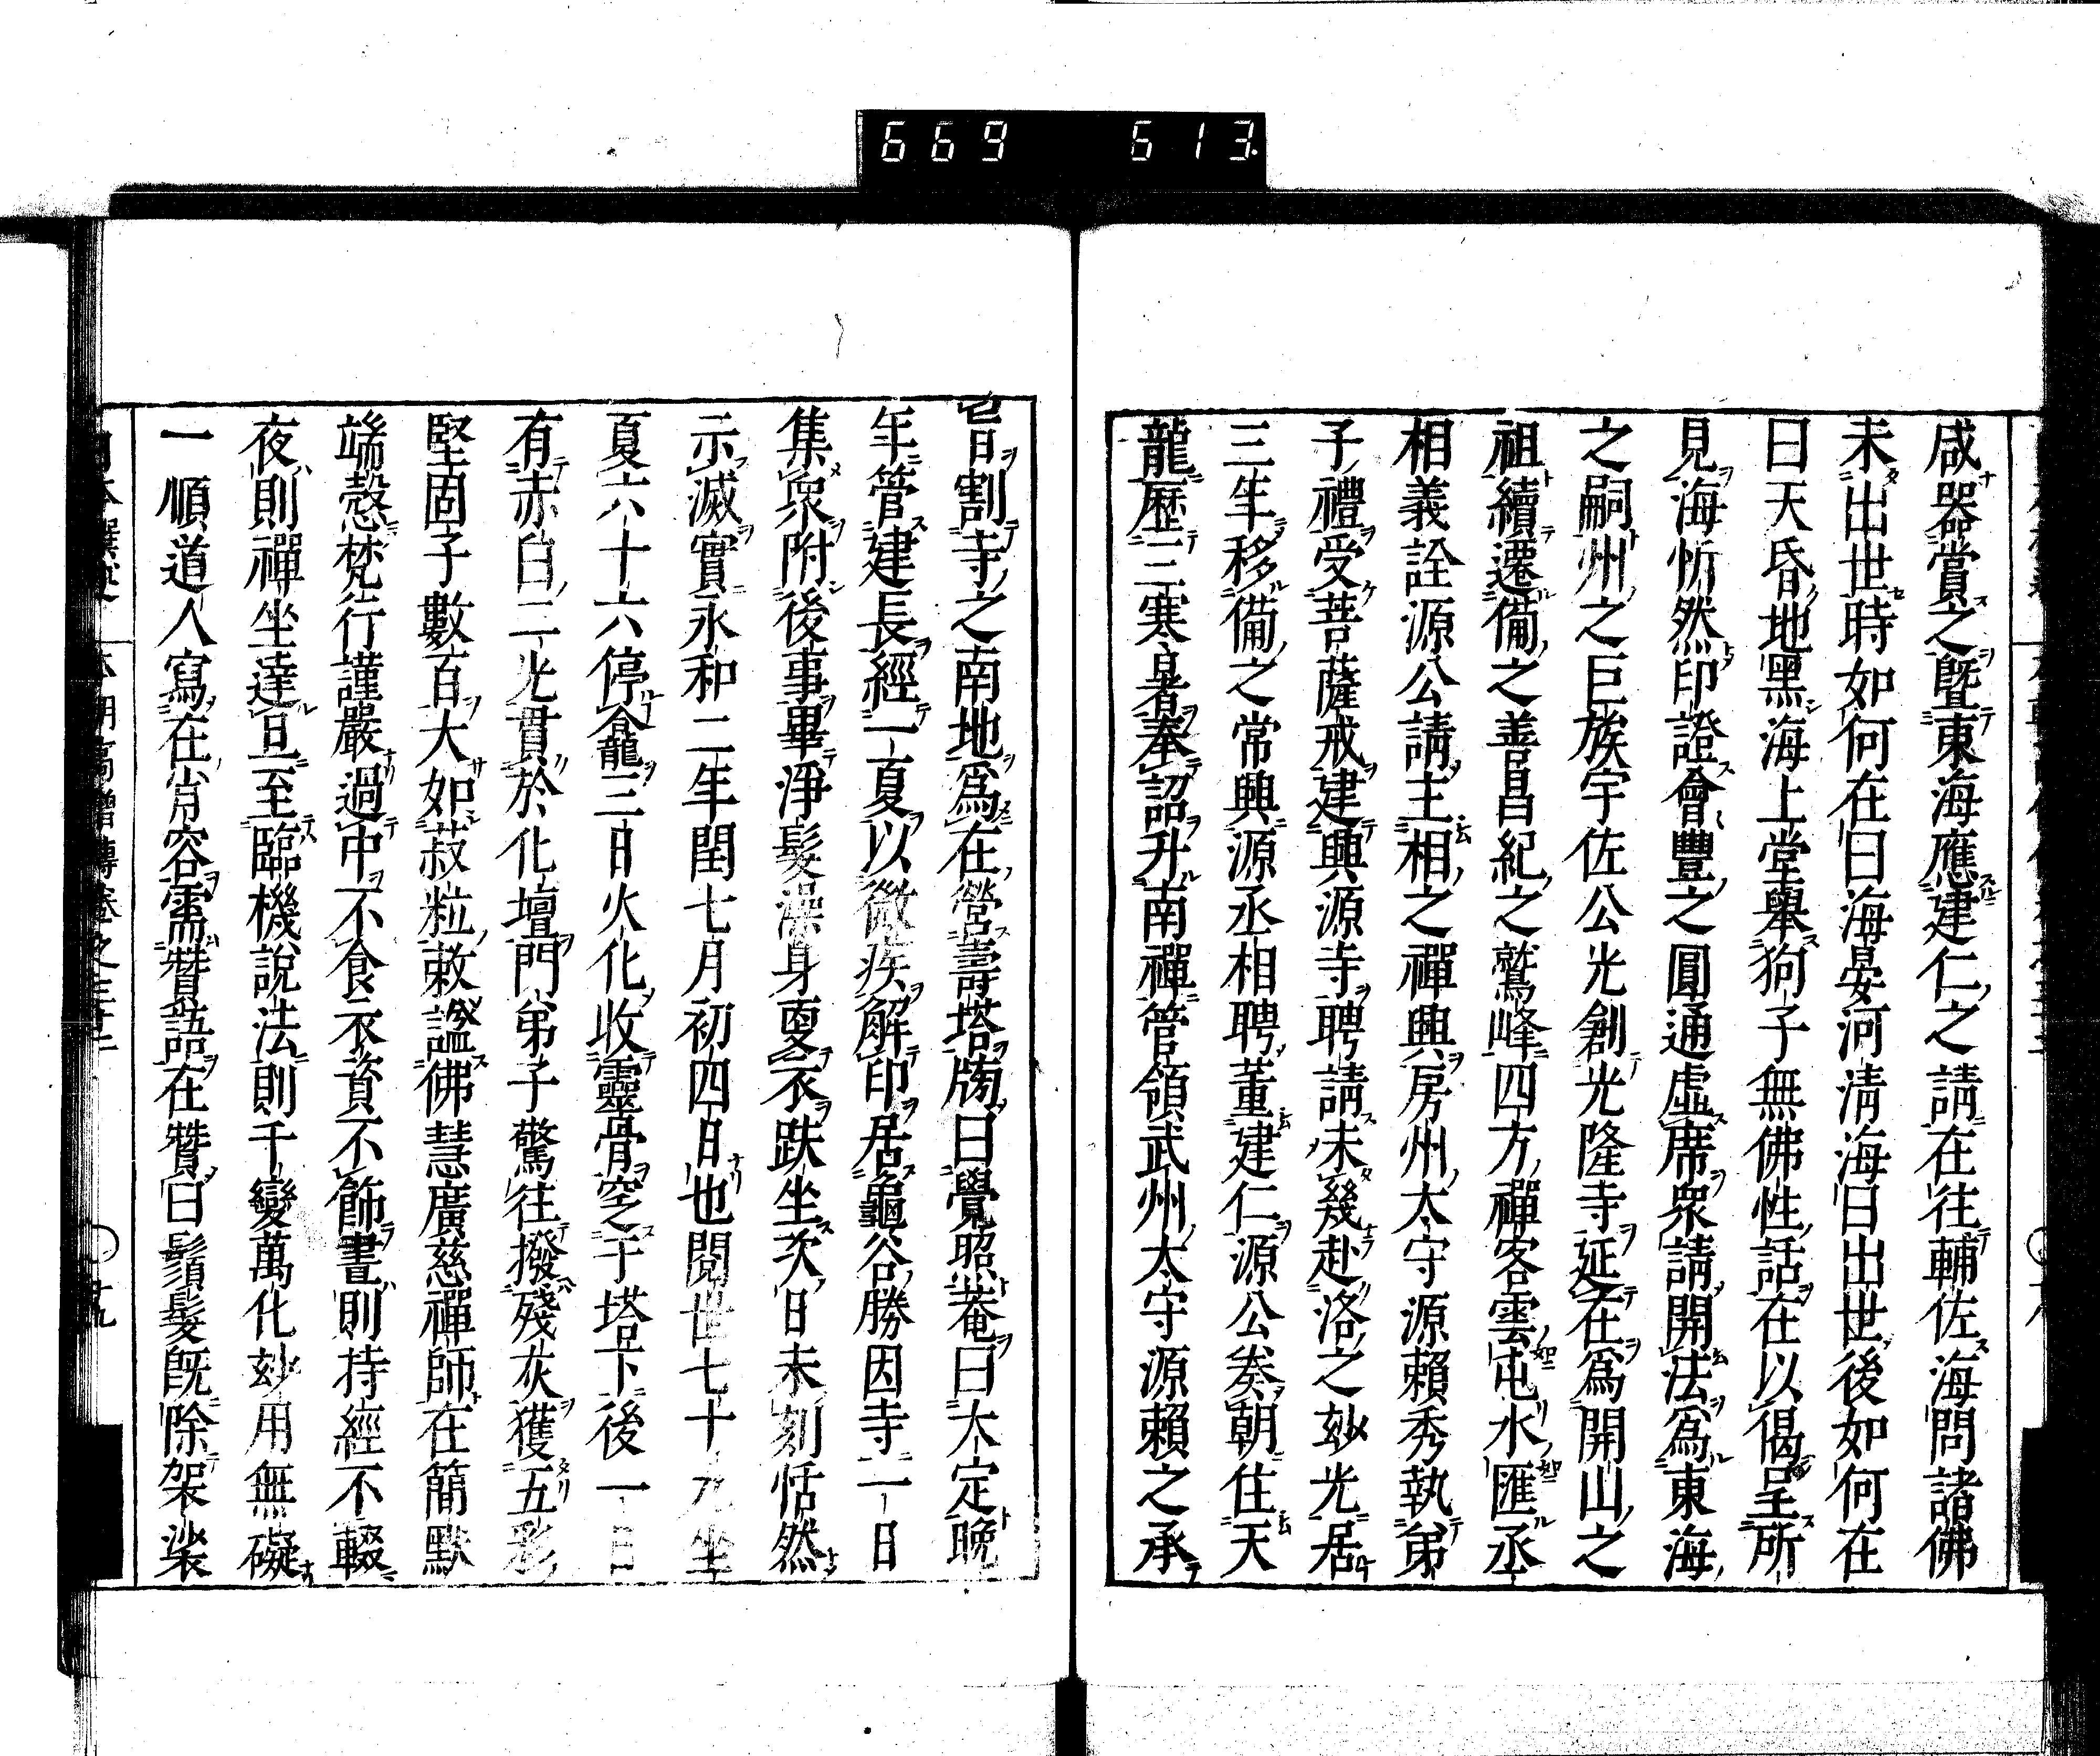 669 613
咸器賞之曁東海應建仁之請在往輔佐海問諸佛
未出世時如何在曰海晏河淸海曰出世後如何在
曰天昏地黑海上堂舉狗子無佛性話在以偈呈所
見海忻然印證會豐之圓通虛席衆請開法爲東海
之嗣州之巨族宇佐公光創光隆寺延在爲開山之
祖續遷備之善昌紀之鷲峰四方禪客雲屯水匯丞
相義詮源公請主相之禪興房州太守源賴秀執弟
子禮受菩薩戒建興源寺聘請未幾赴洛之玅光居
三年移備之常興源丞相聘董建仁源公奏朝住天
龍歷三寒暑奉詔升南禪管領武州太守源賴之承
旨割寺之南地爲在營壽塔牓曰覺照菴曰大定晚
年管建長經一夏以微疾解印居龜谷勝因寺一日
集衆附後事畢淨髮澡身更衣趺坐次日未刻恬然
示滅實永和二年閏七月初四日也閱世七十九坐
夏六十六停龕三日火化收靈骨窆于塔下後一日
有赤白二光貫於化壇門弟子驚往撥殘灰獲五彩
堅固子數百大如菽粒敕謚佛慧廣慈禪師在簡默
端愨梵行謹嚴過中不食衣資不飾晝則持經不輟
夜則禪坐達旦至臨機說法則千變萬化玅用無礙
一順道人寫在肖容需贊語在贊曰鬚髮旣除袈裟
本朝高僧傳卷之三十三
十九